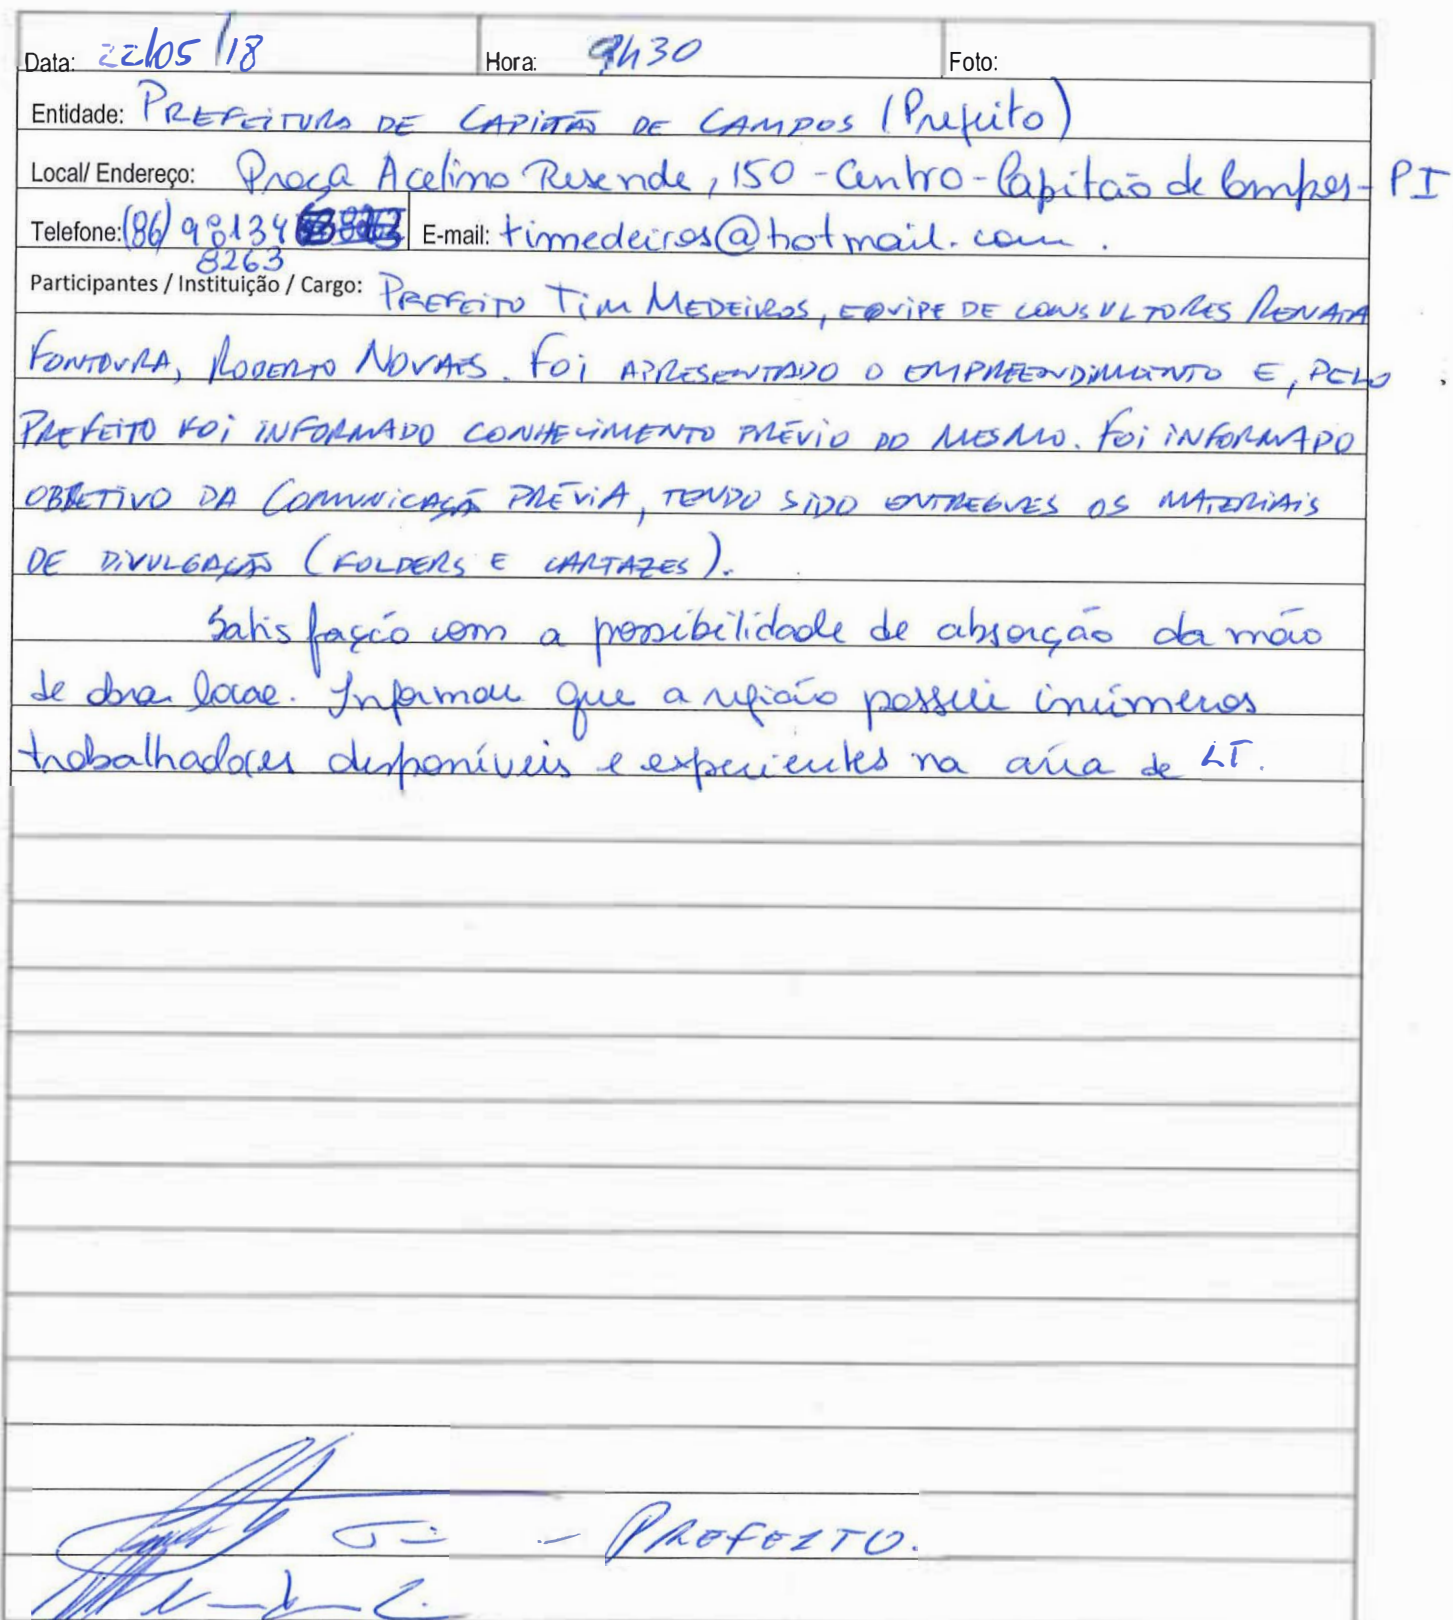 Data: 22/05/18 Hora: 9h30 Foto:
Entidade: PREFEITURA DE CAPITÃO DE CAMPOS (Prefeito)
Local/ Endereço: Praça Acelino Resende, 150 - Centro - Capitão de Campos - PI
Telefone: (86) 98134 E-mail: timedeiros@hotmail.com.
8263
Participantes / Instituição / Cargo: PREFEITO TIM MEDEIROS, EQUIPE DE CONSULTORES RENATA
FONTOURA, ROBERTO NOVAES. FOI APRESENTADO O EMPREENDIMENTO E, PELO
PREFEITO FOI INFORMADO CONHECIMENTO PRÉVIO DO MESMO. FOI INFORMADO
OBJETIVO DA COMUNICAÇÃ PRÉVIA, TENDO SIDO ENTREGUES OS MATERIAIS
DE DIVULGAÇÃO (FOLDERS E CARTAZES).
Satisfação com a possibilidade de absorção da mão
de obra local. Informou que a região possui inúmeros
trabalhadores disponíveis e experientes na área de LT.
- PREFEITO.